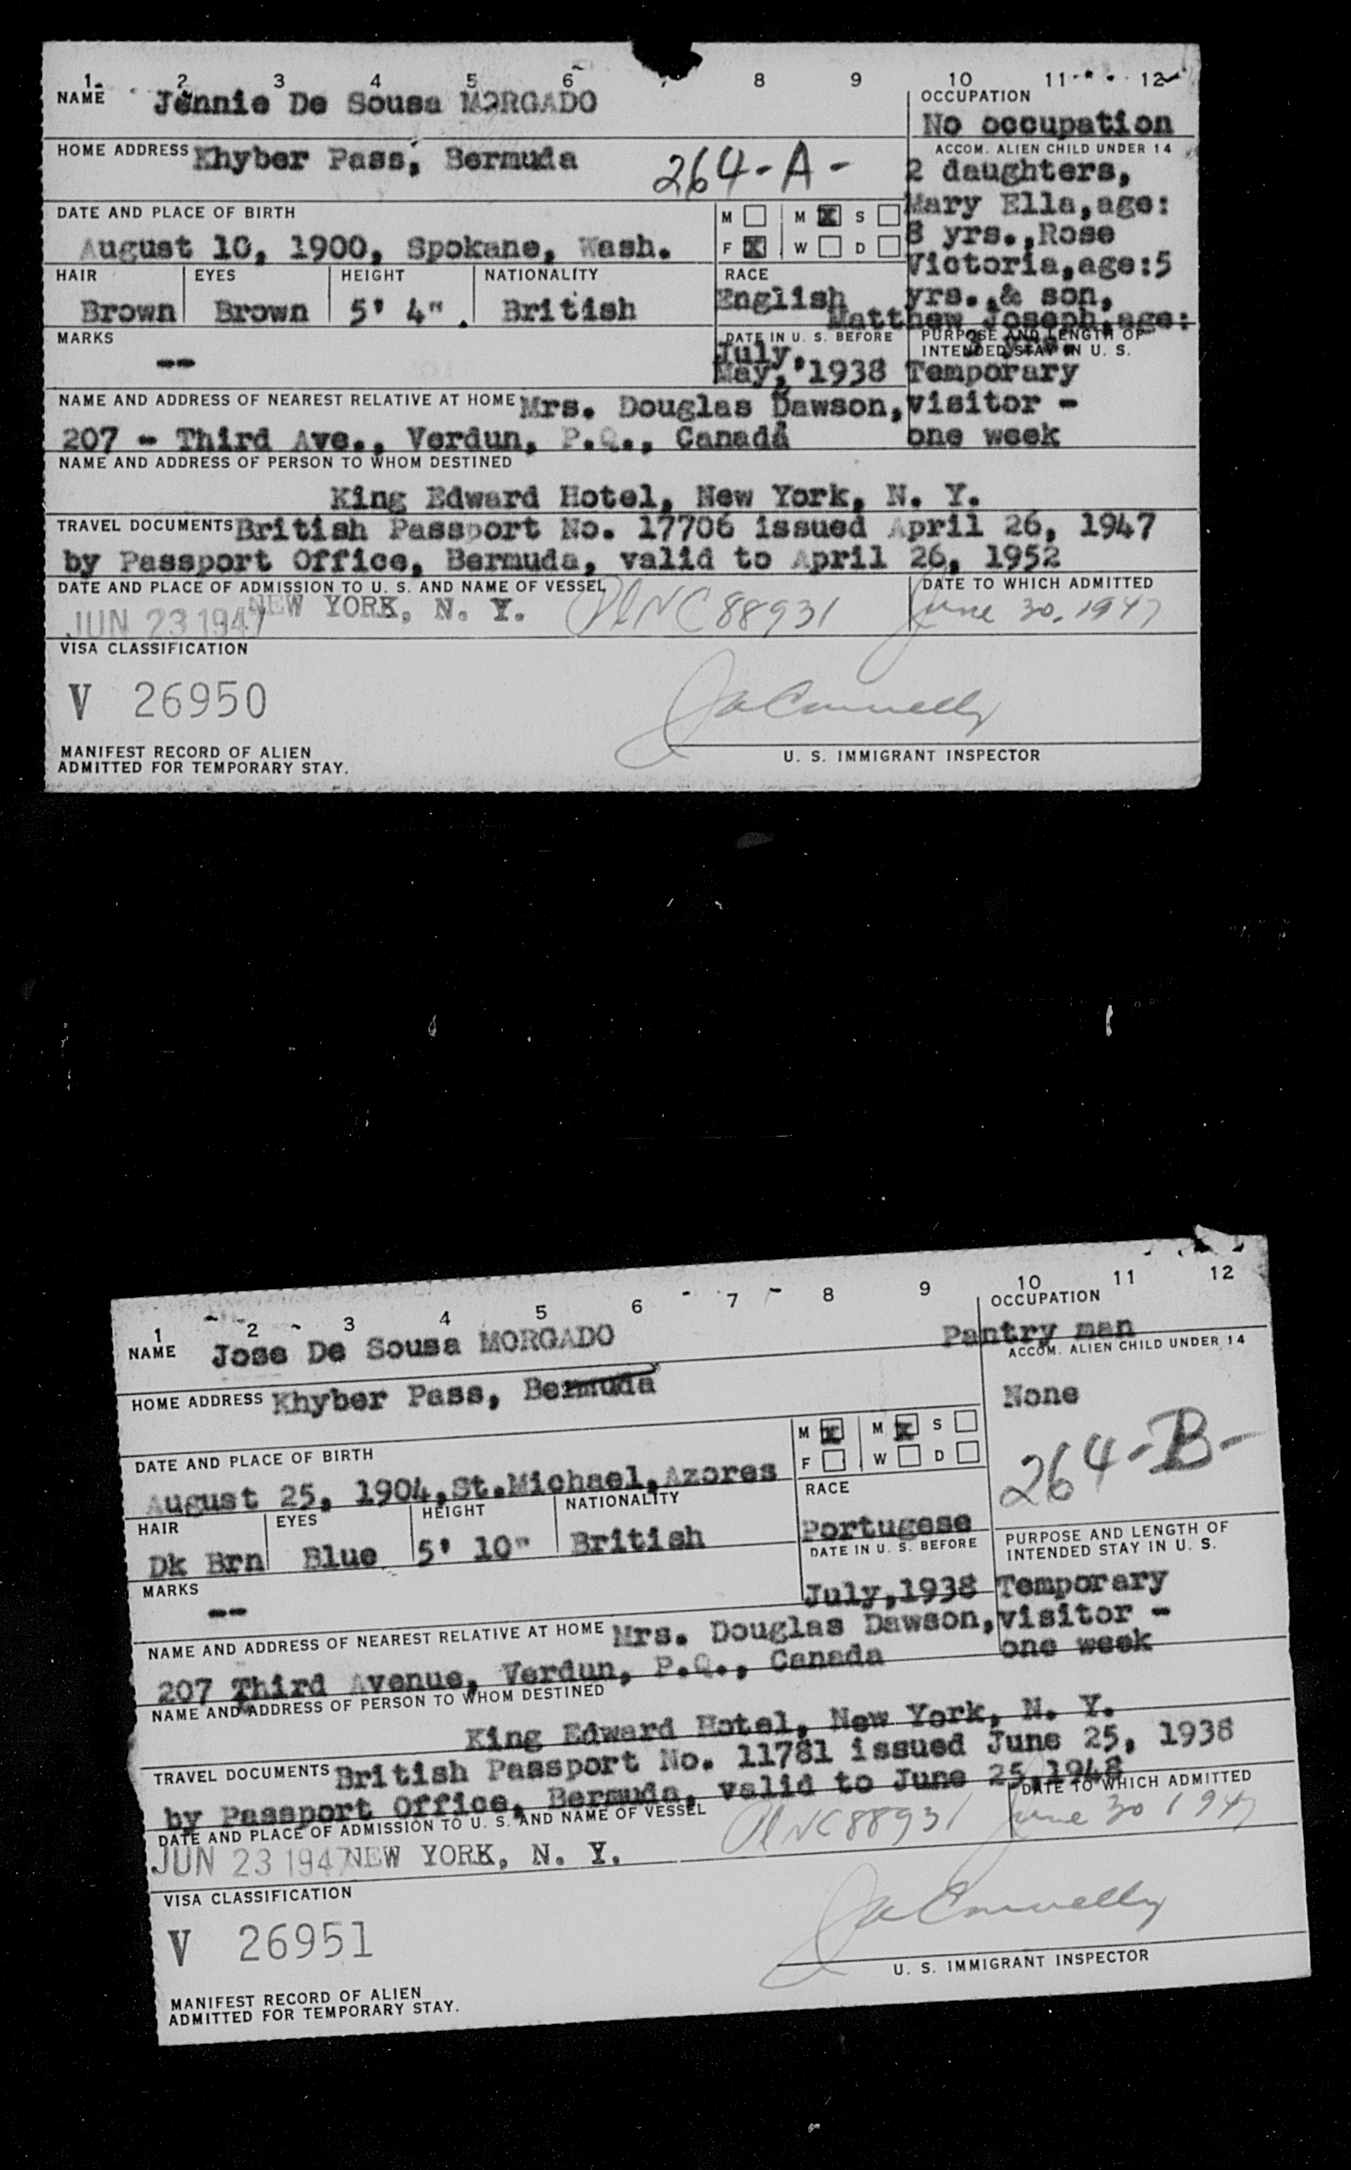 1 2 3 4 5 6 8 9 10 11 12
NAME Jennie De Sousa MORGADO
OCCUPATION
No occupation
HOME ADDRESS Khyber Pass, Bermuda 264-A-
ACCOM. ALIEN CHILD UNDER 14
2 daughters,
Mary Ella,age:
8 yrs.,Rose
Victoria,age:5
yrs.,& son,
Matthew Joseph,age:
yrs.
DATE AND PLACE OF BIRTH
August 10, 1900, Spokane, Wash.
M M X S
F X W D
HAIR EYES HEIGHT NATIONALITY RACE
Brown Brown 5' 4" British English
MARKS
--
DATE IN U. S. BEFORE
July,
May, '1938
PURPOSE AND LENGTH OF
INTENDED STAY IN U. S.
Temporary
visitor -
one week
NAME AND ADDRESS OF NEAREST RELATIVE AT HOME Mrs. Douglas Dawson,
207 - Third Ave., Verdun, P.Q., Canada
NAME AND ADDRESS OF PERSON TO WHOM DESTINED
King Edward Hotel, New York, N. Y.
TRAVEL DOCUMENTS British Passport No. 17706 issued April 26, 1947
by Passport Office, Bermuda, valid to April 26, 1952
DATE AND PLACE OF ADMISSION TO U. S. AND NAME OF VESSEL DATE TO WHICH ADMITTED
JUN 23 1947 NEW YORK, N. Y. NC 88931 June 30, 1947
VISA CLASSIFICATION
V 26950
MANIFEST RECORD OF ALIEN
ADMITTED FOR TEMPORARY STAY.
U. S. IMMIGRANT INSPECTOR
1 2 3 4 5 6 7 8 9 10 11 12
NAME Jose De Sousa MORGADO
OCCUPATION
Pantry man
HOME ADDRESS Khyber Pass, Bermuda
ACCOM. ALIEN CHILD UNDER 14
None
264-B-
DATE AND PLACE OF BIRTH
August 25, 1904,St.Michael,Azores
M X M X S
F W D
HAIR EYES HEIGHT NATIONALITY RACE
Dk Brn Blue 5' 10" British Portugese
MARKS
--
DATE IN U. S. BEFORE
July,1938
PURPOSE AND LENGTH OF
INTENDED STAY IN U. S.
Temporary
visitor -
one week
NAME AND ADDRESS OF NEAREST RELATIVE AT HOME Mrs. Douglas Dawson,
207 Third Avenue, Verdun, P.Q., Canada
NAME AND ADDRESS OF PERSON TO WHOM DESTINED
King Edward Hotel, New York, N. Y.
TRAVEL DOCUMENTS British Passport No. 11781 issued June 25, 1938
by Passport Office, Bermuda, valid to June 25,1948
DATE AND PLACE OF ADMISSION TO U. S. AND NAME OF VESSEL DATE TO WHICH ADMITTED
JUN 23 1947 NEW YORK, N. Y. NC 88931 June 30 1947
VISA CLASSIFICATION
V 26951
MANIFEST RECORD OF ALIEN
ADMITTED FOR TEMPORARY STAY.
U. S. IMMIGRANT INSPECTOR